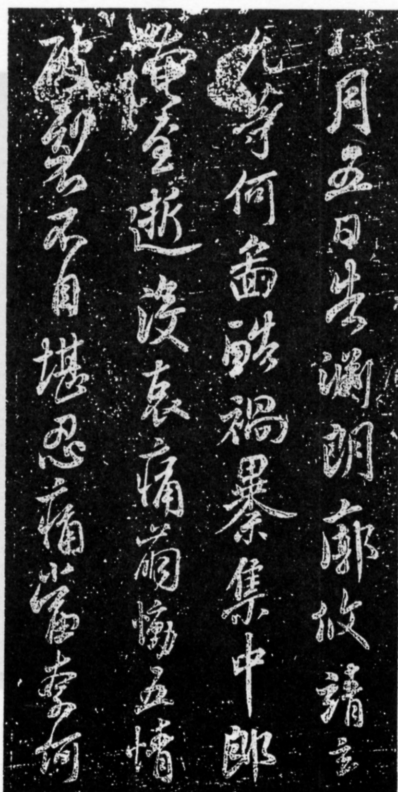 月五日告淵朗廓攸靖玄
允等何啚酷禍暴集中郎
奄至逝沒哀痛崩慟五情
破裂不自堪忍痛當奈何